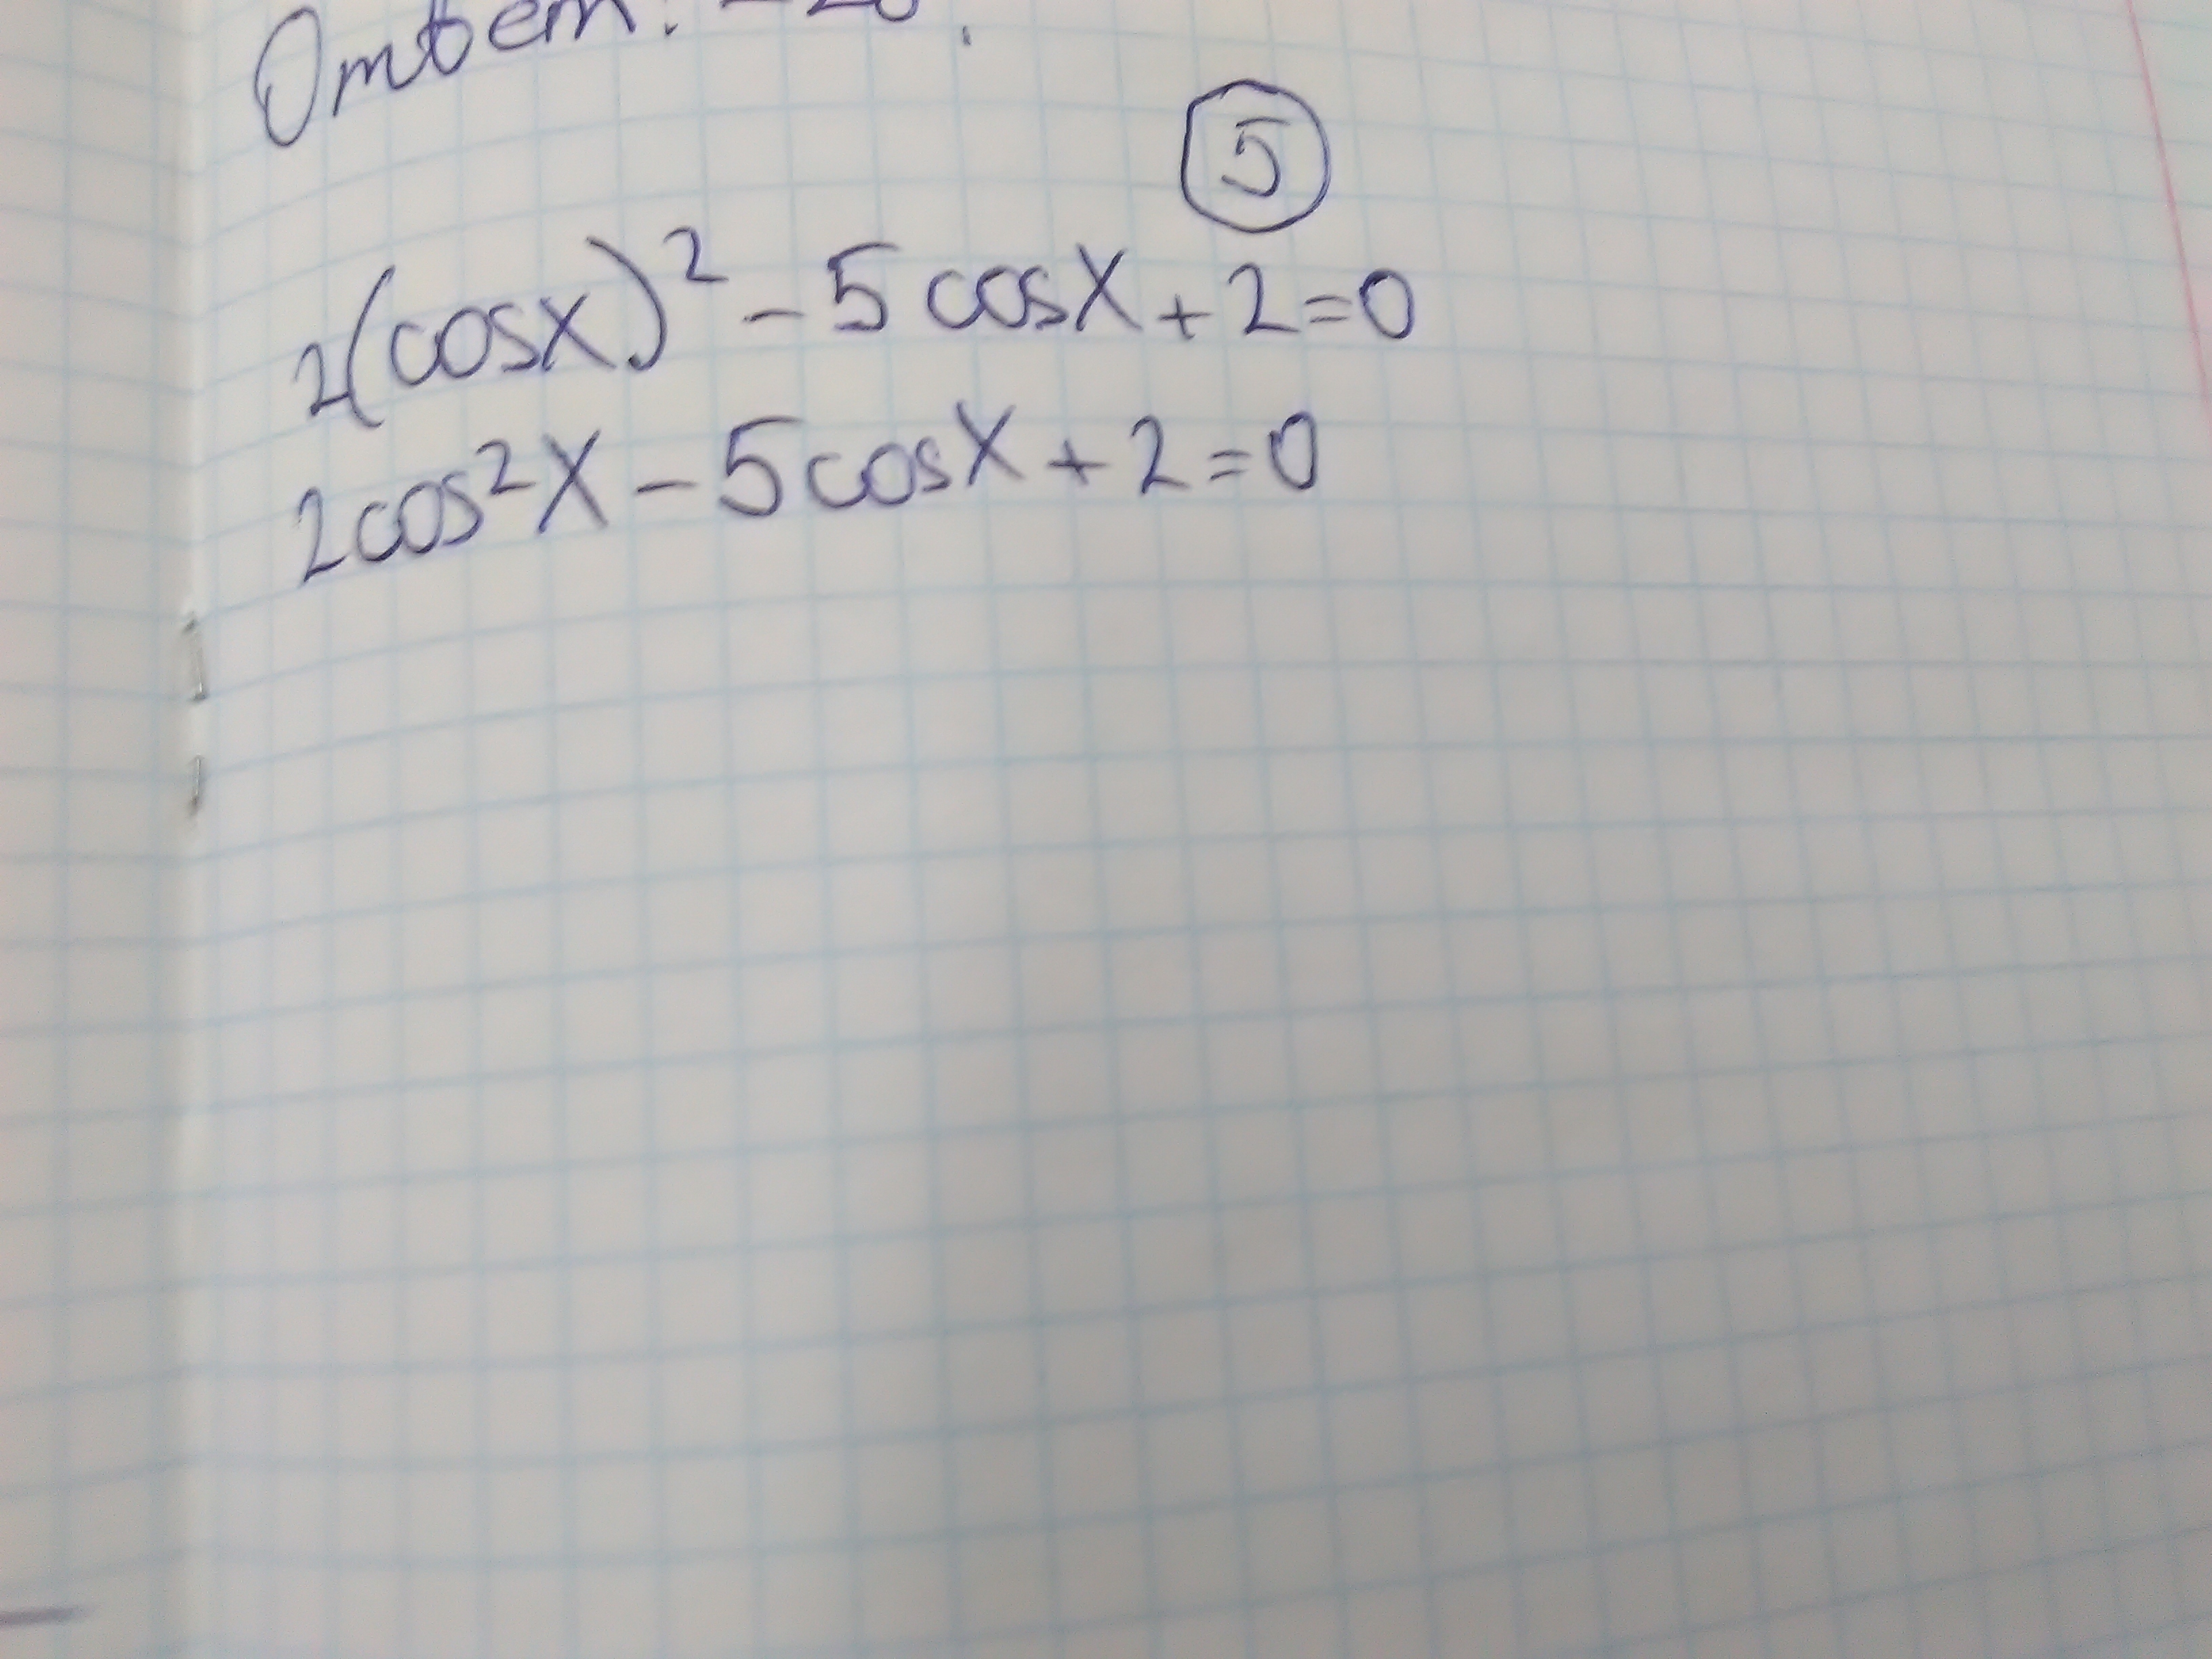 Ответ: -20.
5
2(cosx)² - 5cosx + 2 = 0
2cos²x - 5cosx + 2 = 0